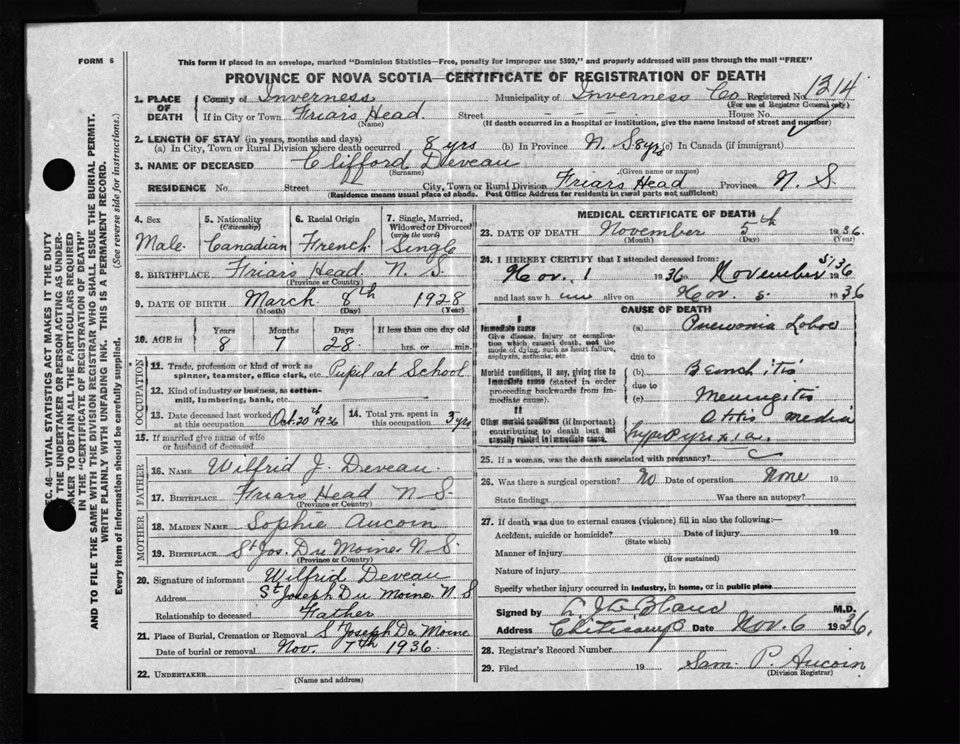 FORM 6
This form if placed in an envelope, marked "Dominion Statistics—Free, penalty for improper use $300," and properly addressed will pass through the mail "FREE"
PROVINCE OF NOVA SCOTIA—CERTIFICATE OF REGISTRATION OF DEATH
1. PLACE OF DEATH County of Inverness Municipality of Inverness Co Registered No. 1214
(For use of Registrar General only)
If in City or Town Friars Head. Street - - - House No.
(Name) (If death occurred in a hospital or institution, give the name instead of street and number)
2. LENGTH OF STAY (in years, months and days)
(a) In City, Town or Rural Division where death occurred 8 yrs (b) In Province N. S 8 yrs (c) In Canada (if immigrant)
3. NAME OF DECEASED Clifford Deveau
(Surname) (Given name or names)
RESIDENCE No. Street City, Town or Rural Division Friars Head Province N. S
(Residence means usual place of abode. Post Office Address for residents in rural parts not sufficient)
4. Sex Male
5. Nationality (Citizenship) Canadian
6. Racial Origin French
7. Single, Married, Widowed or Divorced (write the word) Single
8. BIRTHPLACE Friars Head N. S.
(Province or Country)
9. DATE OF BIRTH March 8th 1928
(Month) (Day) (Year)
10. AGE in Years 8 Months 7 Days 28 If less than one day old hrs. or min.
OCCUPATION
11. Trade, profession or kind of work as spinner, teamster, office clerk, etc. Pupil at School
12. Kind of industry or business, as cotton-mill, lumbering, bank, etc.
13. Date deceased last worked at this occupation Oct. 20th 1936
14. Total yrs. spent in this occupation 3 yrs
15. If married give name of wife or husband of deceased
FATHER
16. NAME Wilfrid J. Deveau.
17. BIRTHPLACE Friars Head N S.
(Province or Country)
MOTHER
18. MAIDEN NAME Sophie Aucoin
19. BIRTHPLACE St Jos. Du Moine N S.
(Province or Country)
20. Signature of informant Wilfrid Deveau
Address St Joseph Du Moine. N S
Relationship to deceased Father
21. Place of Burial, Cremation or Removal St Joseph Du Moine
Date of burial or removal Nov. 7th 1936.
22. UNDERTAKER
(Name and address)
MEDICAL CERTIFICATE OF DEATH
23. DATE OF DEATH November 5th 1936.
(Month) (Day) (Year)
24. I HEREBY CERTIFY that I attended deceased from:
Nov. 1 1936 to November 5 1936
and last saw him alive on Nov. 5. 1936
CAUSE OF DEATH
I
Immediate cause
Give disease, injury or complication which caused death, not the mode of dying, such as heart failure, asphyxia, asthenia, etc.
(a) Pneumonia Lobar
due to
Morbid conditions, if any, giving rise to immediate cause (stated in order proceeding backwards from immediate cause).
(b) Bronchitis
due to
(c) Meningitis
II
Other morbid conditions (if important) contributing to death but not causally related to immediate cause.
Otitis media
hyperpyrexia.
25. If a woman, was the death associated with pregnancy?
26. Was there a surgical operation? No Date of operation None 19
State findings Was there an autopsy?
27. If death was due to external causes (violence) fill in also the following:—
Accident, suicide or homicide? Date of injury 19
(State which)
Manner of injury
(How sustained)
Nature of injury
Specify whether injury occurred in industry, in home, or in public place
Signed by M.D.
Address Cheticamp Date Nov. 6 1936.
28. Registrar's Record Number
29. Filed 19 Sam. P. Aucoin
(Division Registrar)
SEC. 46—VITAL STATISTICS ACT MAKES IT THE DUTY
OF THE UNDERTAKER OR PERSON ACTING AS UNDERTAKER
TO OBTAIN ALL THE PARTICULARS REQUIRED
IN THE "CERTIFICATE OF REGISTRATION OF DEATH"
AND TO FILE THE SAME WITH THE DIVISION REGISTRAR WHO SHALL ISSUE THE BURIAL PERMIT.
WRITE PLAINLY WITH UNFADING INK. THIS IS A PERMANENT RECORD.
Every item of information should be carefully supplied. (See reverse side for instructions.)